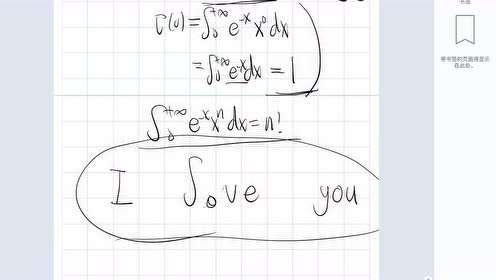 Γ(0)=∫₀^{+∞} e^{-x} x⁰ dx
=∫₀^{+∞} e^{-x} dx = 1
∫₀^{+∞} e^{-x} xⁿ dx = n!
I ∫₀ve you
书签
带书签的页面将显示
在此处。